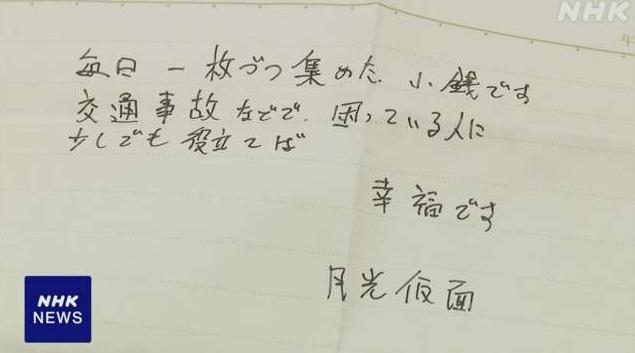 NHK
毎日一枚づつ集めた 小銭です
交通事故などで、困っている人に
少しでも役立てば
幸福です
月光仮面
NHK
NEWS